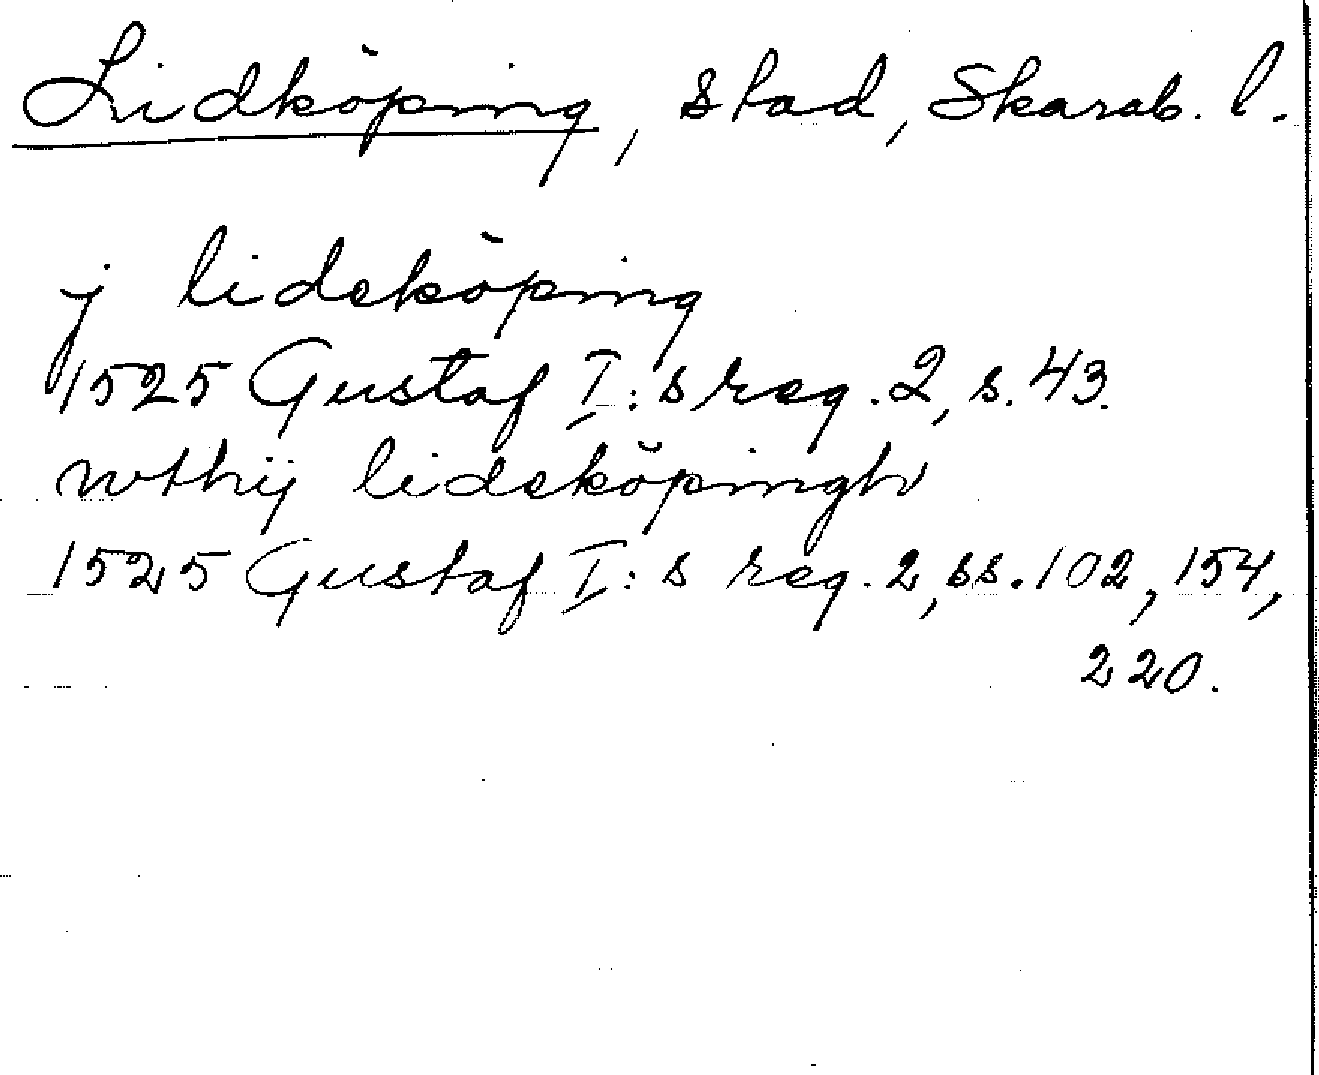 Lidköping, stad, Skarab. l.
j lideköping
1525 Gustaf I:s reg. 2, s. 43.
wthij lideköpingh
1525 Gustaf I:s reg. 2, ss. 102, 154,
220.